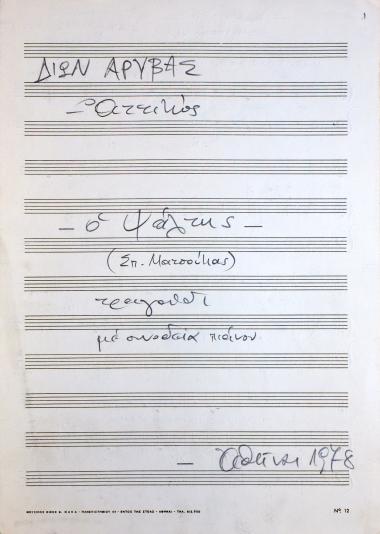 1
ΔΙΩΝ ΑΡΥΒΑΣ
- ὁ Ψάλτης -
(Σπ. Ματσούκας)
τραγούδι
μέ συνοδεία πιάνου
- Ἀθῆναι 1978
ΜΟΥΣΙΚΟΣ ΟΙΚΟΣ
ΠΑΝΕΠΙΣΤΗΜΙΟΥ
ΕΝΤΟΣ ΤΗΣ ΣΤΟΑΣ - ΑΘΗΝΑΙ - ΤΗΛ.
Nº 12